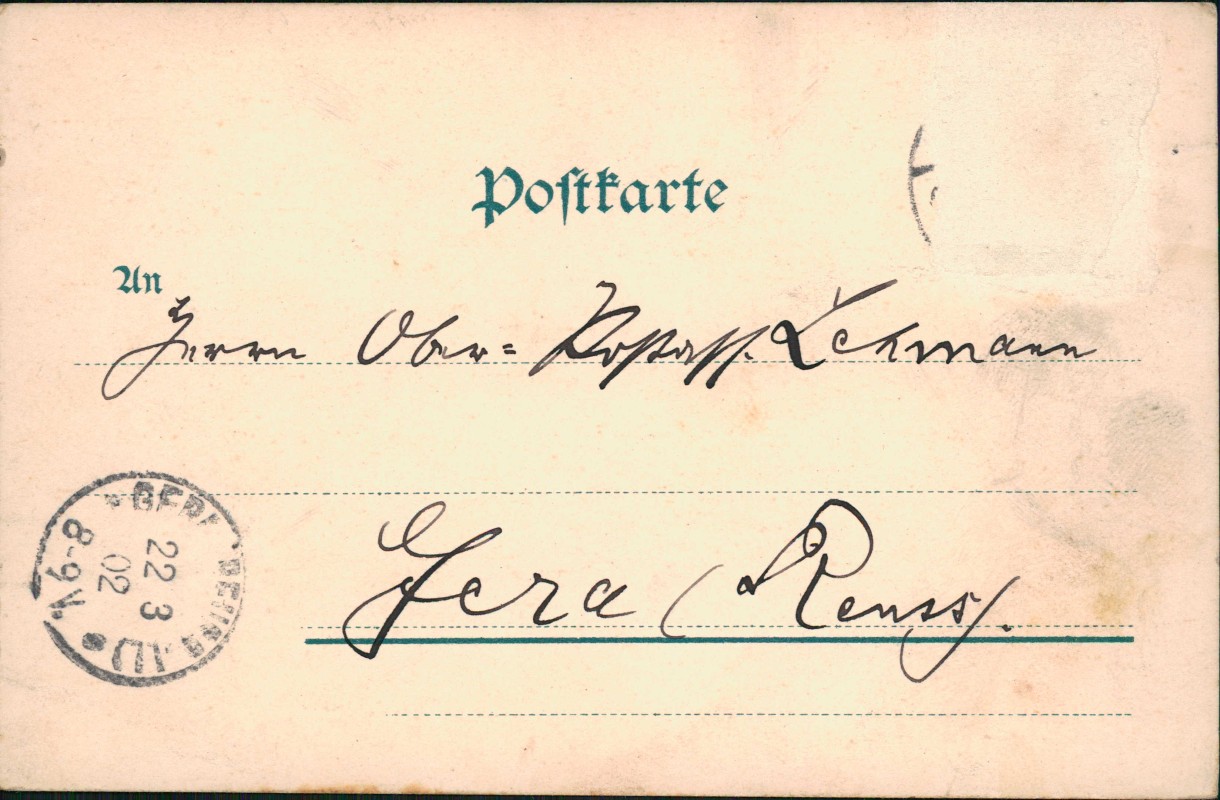 Postkarte
An
Herrn Ober= Postass. Lehmann
Gera (Reuss).
GERA REUSS J.L)
22 3
02
8-9V.